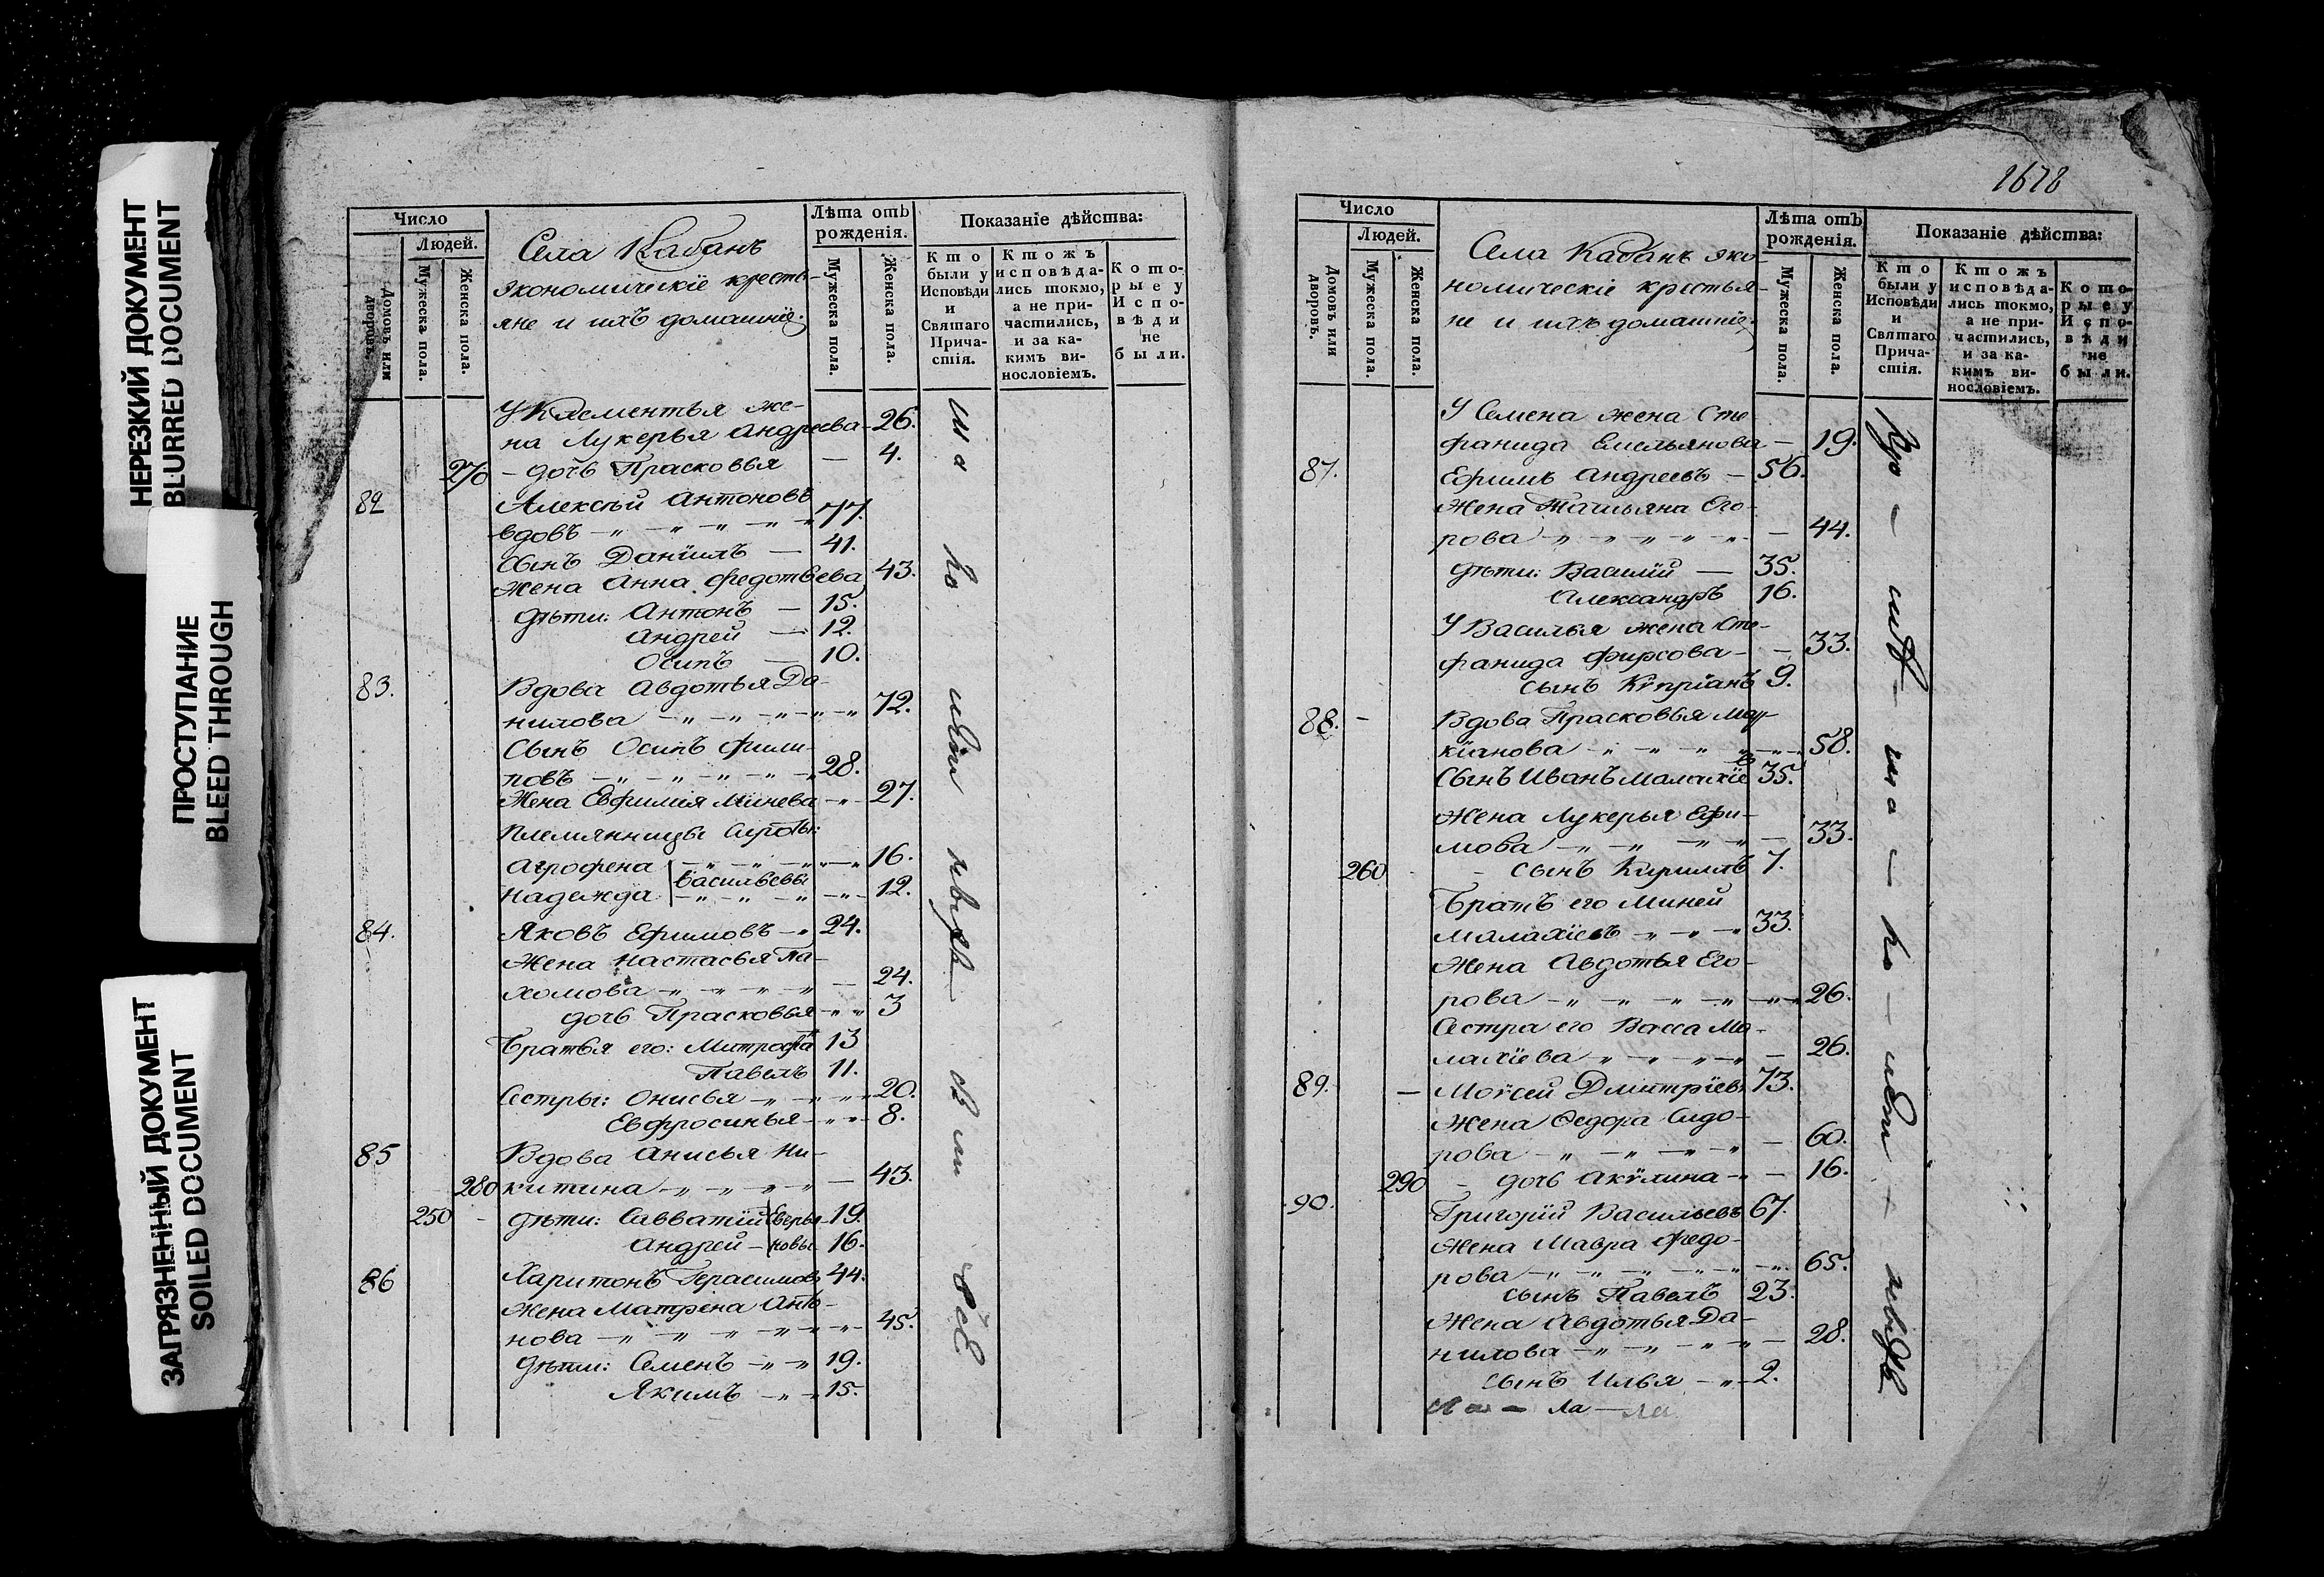 НЕРЕЗКИЙ ДОКУМЕНТ
BLURRED DOCUMENT
ПРОСТУПАНИЕ
BLEED THROUGH
ЗАГРЯЗНЕННЫЙ ДОКУМЕНТ
SOILED DOCUMENT
Число
Людей.
Домовъ или дворовъ.
Мужеска пола.
Женска пола.
Села Кабанъ
экономическіе кресть-
яне и ихъ домашніе:
Лѣта отъ рожденія.
Мужеска пола.
Женска пола.
Показаніе дѣйства:
Кто были у Исповѣди и Святаго Прича-стія.
Ктожъ исповѣда-лись токмо, а не при-частились, и за ка-кимъ ви-нословіемъ.
Кото-рые у Испо-вѣди не были.
У Клементья же-
на Лукерья Андреева - 26.
270 - дочь Прасковья — 4.
82 Алексѣй Антоновъ
вдовъ 77.
Сынъ Даніилъ — 41.
Жена Анна Федотьева 43.
дѣти: Антонъ — 15.
Андрей — 12.
Осипъ — 10.
83. Вдова Авдотья Да-
нилова 72.
Сынъ Осипъ Фили-
повъ 28.
Жена Евфимия Минева 27.
Племянницы сироты:
Агрофена 16.
Васильевы
Надежда 12.
84. Яковъ Ефимовъ 24.
Жена Настасья Па-
хомова — 24.
дочь Прасковья 3
Братья его: Митрофа 13
Павелъ 11.
Сестры: Онисья 20.
Евфросинья 8.
85 Вдова Анисья Ни-
280 китина — 43.
250 - дѣти: Савватій 19.
Андрей 16.
86 Харитонъ Герасимовъ 44.
Жена Матрена Анѳ-
нова 45.
дѣти: Семенъ 19.
Якимъ 15.
1678
Число
Людей.
Домовъ или дворовъ.
Мужеска пола.
Женска пола.
Села Кабанъ эко-
номическіе крестья-
не и ихъ домашніе.
Лѣта отъ рожденія.
Мужеска пола.
Женска пола.
Показаніе дѣйства:
Кто были у Исповѣди и Святаго Прича-стія.
Ктожъ исповѣда-лись токмо, а не при-частились, и за ка-кимъ ви-нословіемъ.
Кото-рые у Испо-вѣди не были.
У Семена жена Сте-
фанида Емельянова — 19.
87. Ефимъ Андреевъ — 56.
Жена Татьяна Его-
рова — 44.
дѣти: Василій — 35.
Александръ 16.
У Василья жена Сте-
фанида Фирсова — 33.
сынъ Кипріанъ 9.
88. - Вдова Прасковья Мар-
кіанова 58.
Сынъ Иванъ Малахіевъ 35.
Жена Лукерья Ефи-
мова — 33.
260 - сынъ Кирилъ 7.
Братъ его Миней
Малахіевъ 33.
Жена Авдотья Его-
рова 26.
Сестра его Васса Ма-
лахіева — 26.
89. — Моѵсей Дмитріевъ 73.
Жена Федора Сидо-
рова — 60.
290 - дочь Акѵлина — 16.
90. Григорій Васильевъ 67.
Жена Мавра Федо-
рова 65.
сынъ Павелъ 23.
Жена Авдотья Да-
нилова — 28.
сынъ Илья 2.